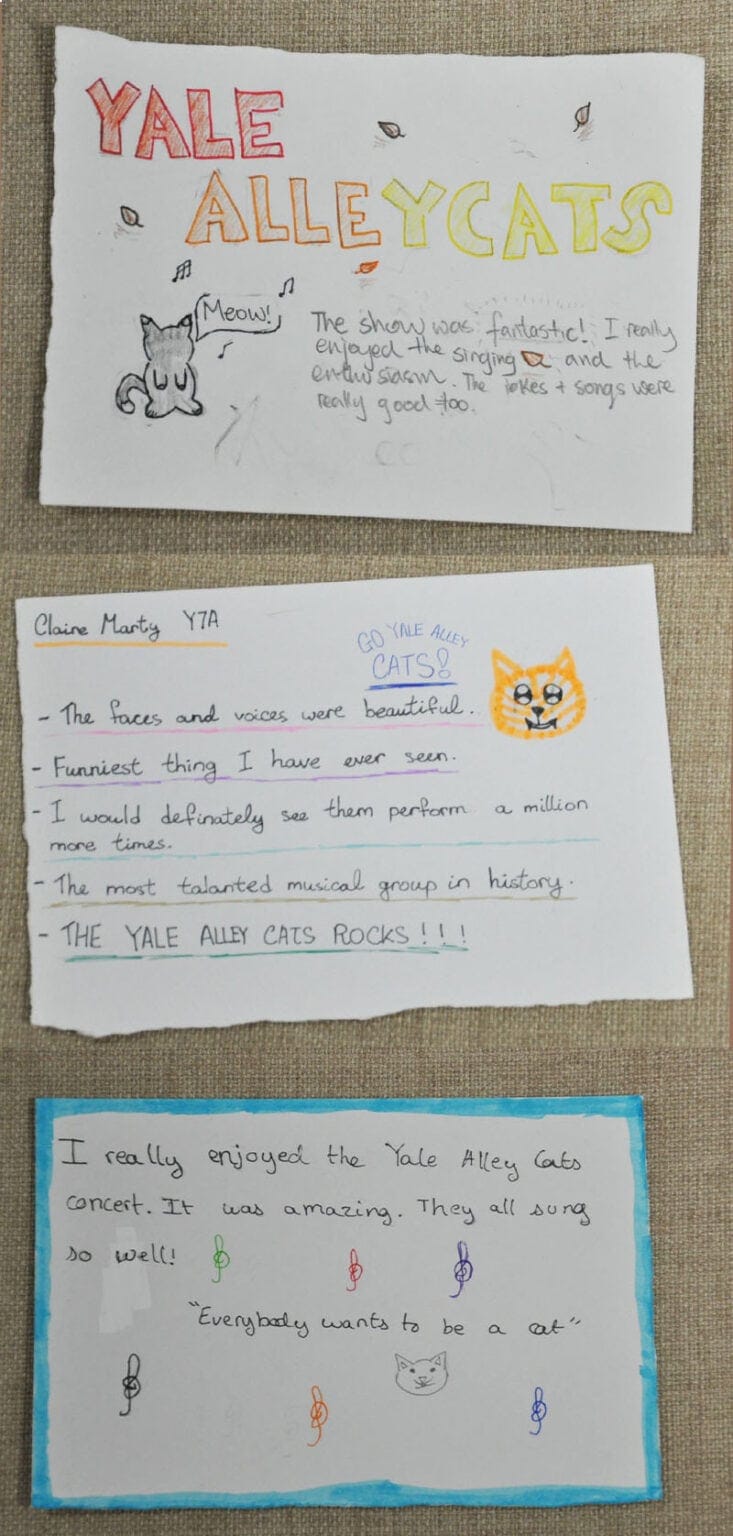 YALE
ALLEYCATS
Meow!
The show was fantastic! I really
enjoyed the singing and the
enthusiasm. The jokes + songs were
really good too.
Claire Marty Y7A
GO YALE ALLEY
CATS!
- The faces and voices were beautiful.
- Funniest thing I have ever seen.
- I would definately see them perform a million
more times.
- The most talanted musical group in history.
- THE YALE ALLEY CATS ROCKS!!!
I really enjoyed the Yale Alley Cats
concert. It was amazing. They all sung
so well!
"Everybody wants to be a cat"